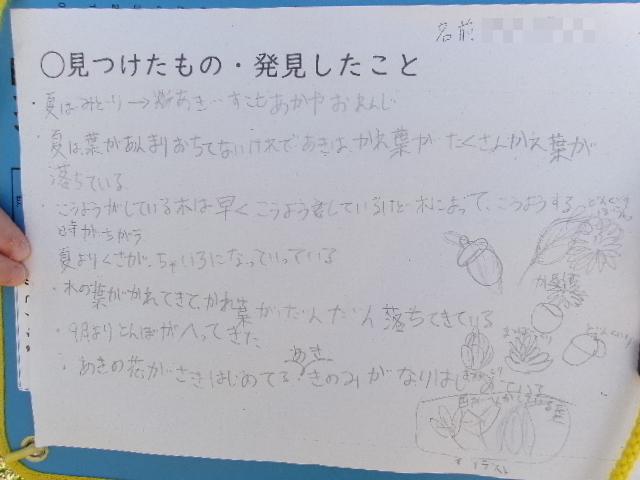 名前
○見つけたもの・発見したこと
・夏はみどり→秋あき…すこしあかやおれんじ
・夏は葉があんまりおちてないけれどあきは、かれ葉がたくさんかれ葉が
落ちている
・こうようがしている木は早くこうようしているけど木によって、こうようする
時がちがう
夏よりくさが、ちゃいろになっていっている
・木の葉がかれてきて、かれ葉がだんだん落ちてきている
・9月よりとんぼがへってきた
あき
・あきの花がさきはじめてる きのみがなりはじ
どんぐり
イラスト